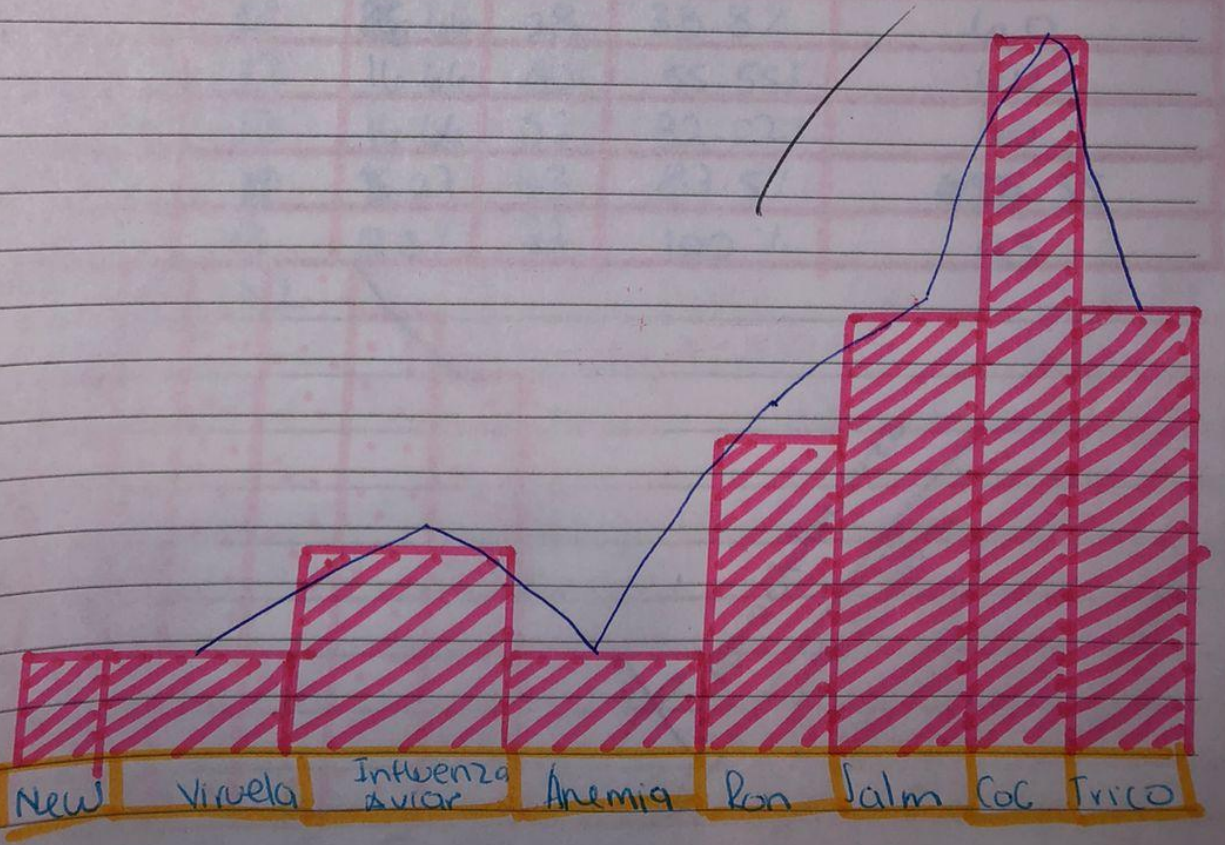 New
Viruela
Influenza
Aviar
Anemia
Ron
Salm
Coc
Trico